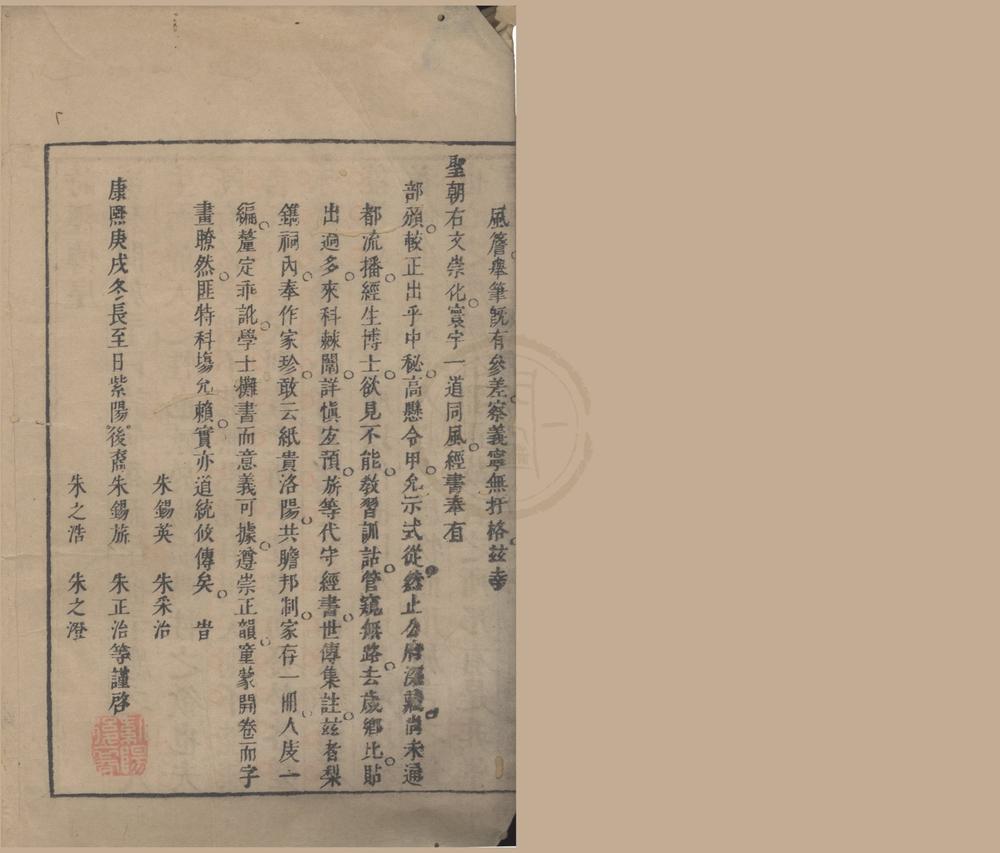 風簷舉筆旣有參差察義寧無扞格兹幸
聖朝右文崇化寰宇一道同風經書奉有
部頒較正出乎中秘高懸令甲允示式從繇止公府深藏尚未通
都流播經生博士欲見不能敎習訓詁管窺無路去歲鄉比貼
出過多來科棘闈詳愼宜預旂等代守經書世傳集註兹者梨
鐫祠內奉作家珍敢云紙貴洛陽共瞻邦制家存一冊人庋一
編釐定乖訛學士攤書而意義可據遵崇正韻童蒙開卷而字
畫瞭然匪特科塲允賴實亦道統攸傳矣 旹
朱錫英 朱采治
康熙庚戌冬長至日紫陽後裔朱錫旂 朱正治等謹啓
朱之浩 朱之澄